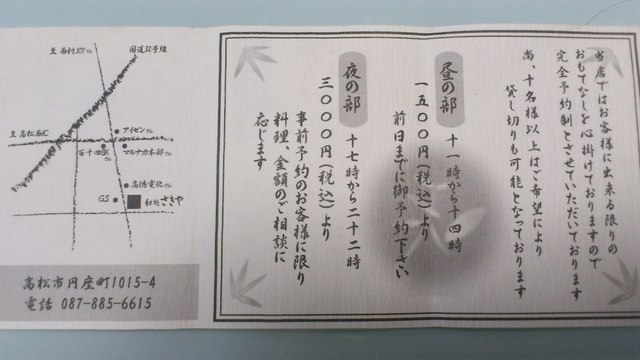 当店ではお客様に出来る限りの
おもてなしを心掛けておりますので
完全予約制とさせていただいております
尚、十名様以上はご希望により
貸し切りも可能となっております
昼の部 十一時から十四時
一五〇〇円(税込)より
前日までに御予約下さい
夜の部 十七時から二十二時
三〇〇〇円(税込)より
事前予約のお客様に限り
料理、金額のご相談に
応じます
至 西村JOYさん
国道32号線
至 高松西IC
アイゼンさん
百十四銀行
マルナカ本部さん
高橋電化さん
GS
和処 さきや
高松市円座町1015-4
電話 087-885-6615